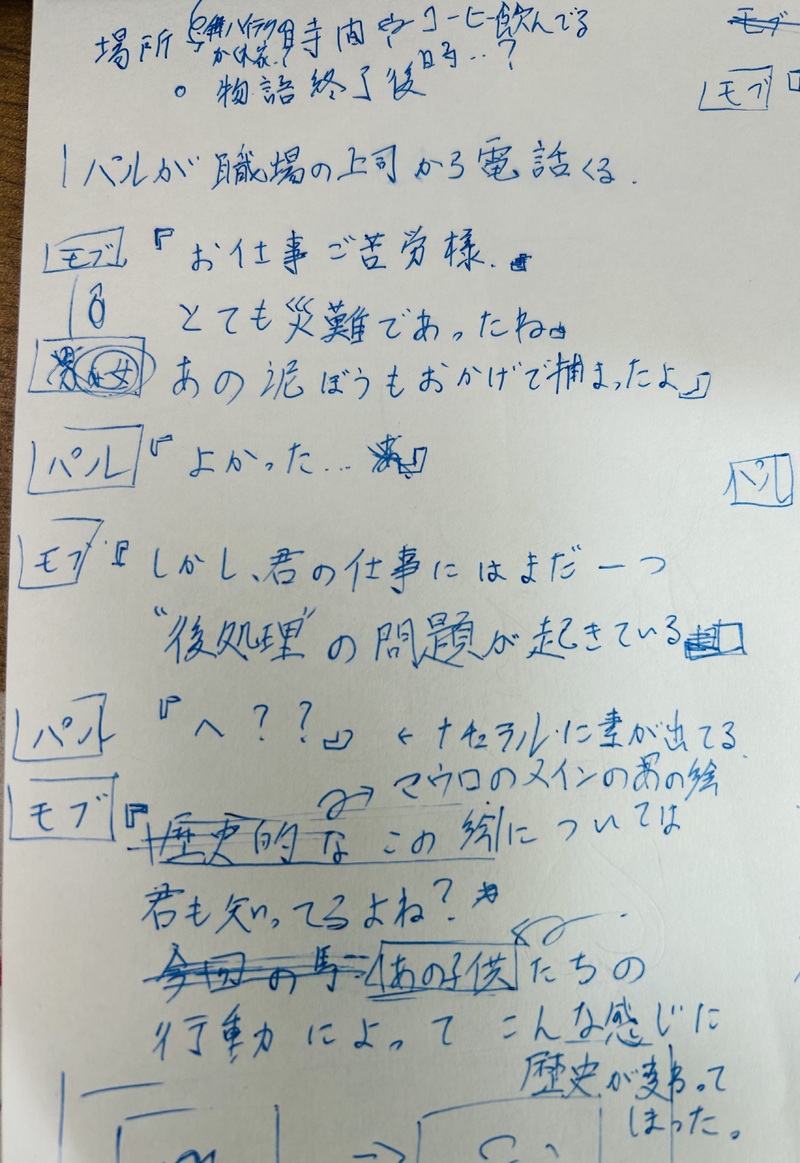 場所 時間 コーヒー飲んでる時..?
。物語終了後
パルが職場の上司から電話くる.
モブ
モブ『お仕事ご苦労様.
とても災難であったね。
女 あの泥ぼうもおかげで捕まったよ』
パル『よかった…』
パル
モブ『しかし、君の仕事にはまだ一つ
"後処理"の問題が起きている
パル『へ??』 ← ナチュラルに素が出てる.
→ マウロのメインのあの絵
モブ『歴史的な この絵については
君も知ってるよね?
あの子供たちの
行動によって こんな感じに
歴史が変わって
しまった。